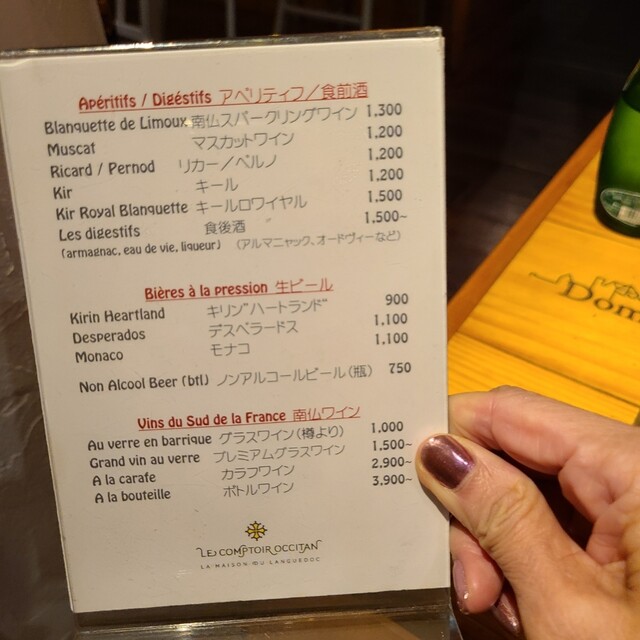 Apéritifs / Digéstifs アペリティフ／食前酒
Blanquette de Limoux 南仏スパークリングワイン 1,300
Muscat マスカットワイン 1,200
Ricard / Pernod リカー／ペルノ 1,200
Kir キール 1,200
Kir Royal Blanquette キールロワイヤル 1,500
Les digestifs 食後酒 1,500~
(armagnac, eau de vie, liqueur) （アルマニャック、オードヴィーなど）
Bières à la pression 生ビール
Kirin Heartland キリン"ハートランド" 900
Desperados デスペラードス 1,100
Monaco モナコ 1,100
Non Alcool Beer (btl) ノンアルコールビール（瓶） 750
Vins du Sud de la France 南仏ワイン
Au verre en barrique グラスワイン（樽より） 1,000
Grand vin au verre プレミアムグラスワイン 1,500~
A la carafe カラフワイン 2,900~
A la bouteille ボトルワイン 3,900~
LE COMPTOIR OCCITAN
LA MAISON DU LANGUEDOC
Dom